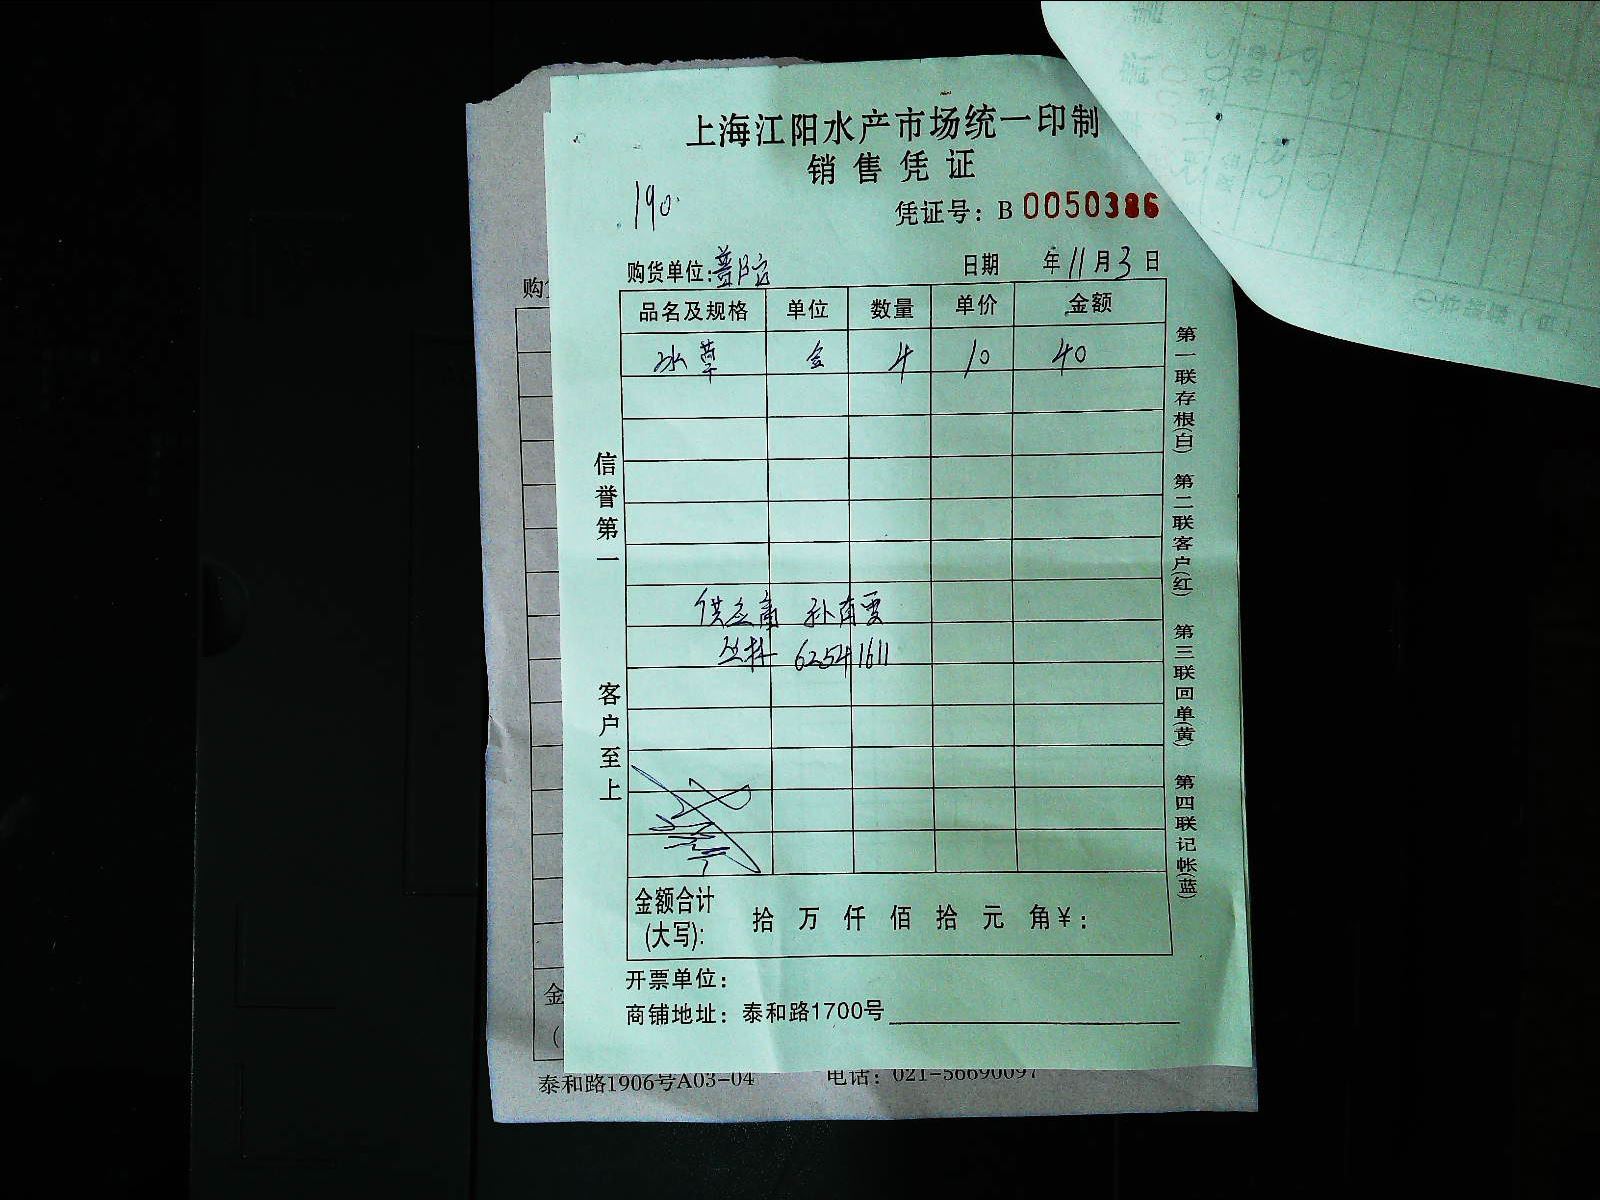 上海江阳水产市场统一印制
销售凭证
190.
凭证号：B 0050386
购货单位：普陀 日期 年11月3日
品名及规格 单位 数量 单价 金额
水草 4 10 40
供应商
丛林 62541611
信誉第一
客户至上
第一联存根(白) 第二联客户(红) 第三联回单(黄) 第四联记帐(蓝)
金额合计
(大写): 拾 万 仟 佰 拾 元 角¥:
开票单位：
商铺地址：泰和路1700号
购
金
(
泰和路1906号A03-04 电话：021-56690097